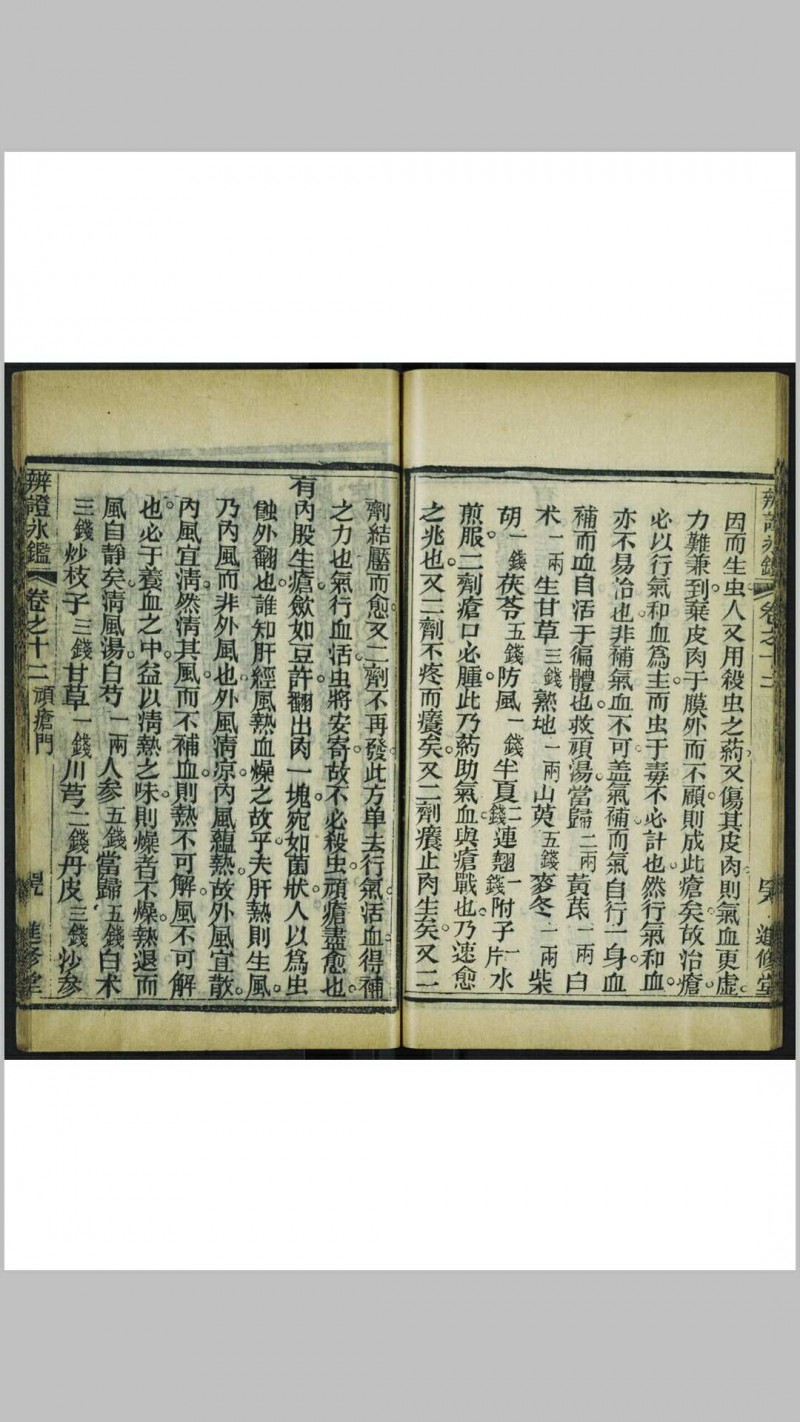 因而生虫人又用殺虫之葯又傷其皮肉則氣血更虛
力難兼到棄皮肉于膜外而不顧則成此瘡矣故治瘡
必以行氣和血爲主而虫于毒不必計也然行氣和血
亦不易冶也非補氣血不可盖氣補而氣自行一身血
補而血自活于徧體也救頑湯當歸二兩黄茋一兩白
术一兩生甘草三錢熟地一兩山萸五錢麥冬一兩柴
胡一錢茯苓五錢防風一錢半夏二錢連翹一錢附子一片水
煎服二劑瘡口必腫此乃葯助氣血與瘡戰也乃速愈
之兆也又二劑不疼而癢矣又二劑癢止肉生矣又二
劑結靨而愈又二劑不再發此方单去行氣活血得補
之力也氣行血活虫將安寄故不必殺虫頑瘡盡愈也
有内股生瘡歛如豆許翻出肉一塊宛如菌狀人以為虫
蝕外翻也誰知肝經風熱血燥之故乎夫肝熱則生風
乃内風而非外風也外風清凉内風蘊熱故外風宜散
内風宜清然清其風而不補血則熱不可解風不可解
也必于養血之中益以清熱之味則燥者不燥熱退而
風自静矣清風湯白芍一兩人参五錢當歸五錢白术
三錢炒枝子三錢甘草一錢川芎二錢丹皮三錢沙参
辨證氷鑑 卷之十二 頑瘡門 進修堂